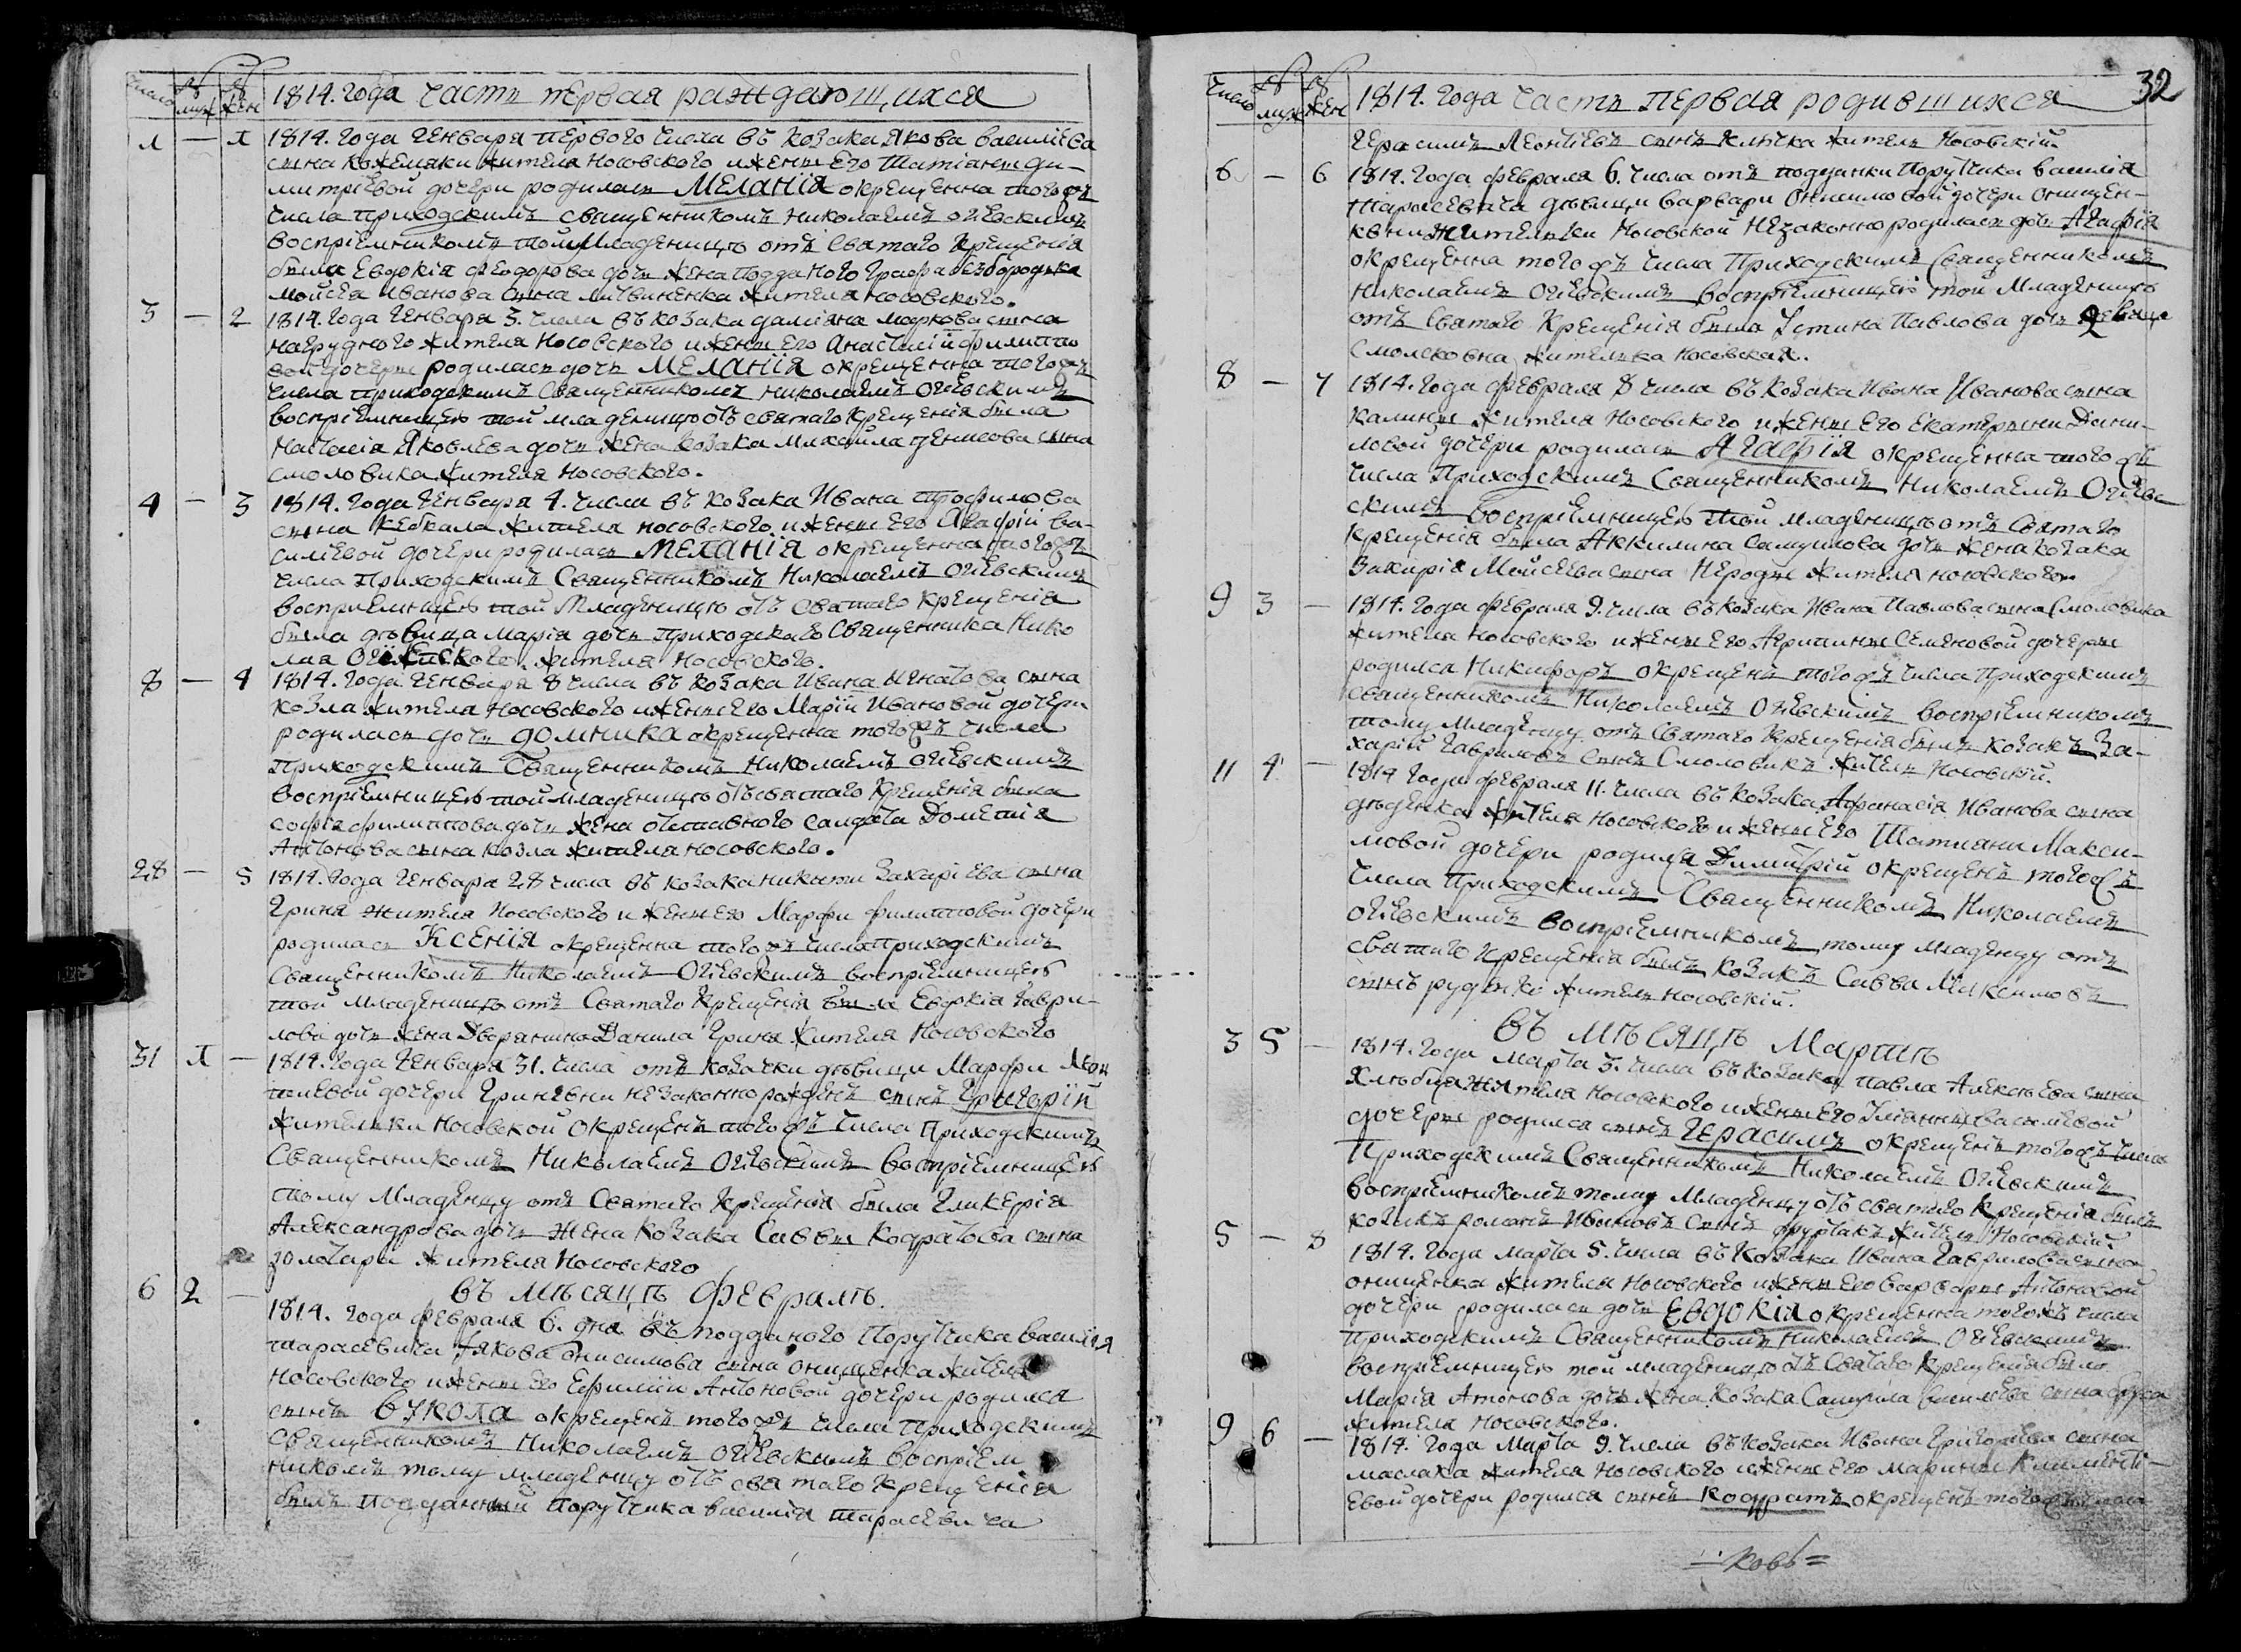 Число № муж № жен 1814. Года Часть первая раждающихся
1 — 1 1814. Года Генваря первого числа въ козака Якова Василіева
сына Кожемяки жителя Носовского и жены его Татіаны Ди-
митріевой дочери родилась Меланія окрещенна того жъ
числа приходскимъ священникомъ Николаемъ Огіевскимъ
воспріемникомъ той младеницы отъ Святаго Крещенія
была Евдокія Феодорова дочь жена подданого Графа Безбородька
Мойсея Иванова сына Литвиненка жителя Носовского.
3 — 2 1814. Года Генваря 3. числа въ козака Даміяна Маркова сына
Нагрудного жителя Носовского и жены его Анастасіи Филиппо
вой дочеры родилась дочь Меланія окрещенна того жъ
числа приходскимъ Священникомъ Николаемъ Огіевскимъ
воспріемницею той младеницы отъ святаго крещенія была
Наталія Яковлева дочь жена козака Михайла Денисова сына
Смоловика жителя Носовского.
4 — 3 1814. Года Генваря 4. числа въ козака Ивана Трофимова
сына Кебкала жителя Носовского и жены его Агафіи Ва-
силіевой дочери родилась Меланія окрещенна того жъ
числа Приходскимъ Священникомъ Николаемъ Огіевскимъ
воспріемницею той Младеницы отъ Святаго Крещенія
была дѣвица Марія дочь приходскаго Священника Нико
лая Огіевского. жителя Носовского.
8 — 4 1814. Года Генваря 8 числа въ козака Ивана Игнатова сына
Козла жителя Носовского и жены его Маріи Ивановой дочери
родилась дочь Домника окрещенна того жъ числа
Приходскимъ Священникомъ Николаемъ Огіевскимъ
воспріемницею той младеницы отъ святаго Крещенія была
Софія Филиппова дочь жена отставного салдата Дометія
Антонова сына Козла жителя Носовского.
28 — 5 1814. Года Генваря 28 числа въ козака Никиты Захаріева сына
Грина жителя Носовского и жены его Марфы Филипповой дочери
родилась Ксенія окрещенна того жъ числа приходскимъ
Священникомъ Николаемъ Огіевскимъ воспріемницею
той младеницы отъ Святаго Крещенія была Евдокія Гаври-
лова дочь жена Дворянина Данила Грина жителя Носовского
31 1 — 1814. Года Генваря 31. числа отъ козачки дѣвицы Марфы Леон
тіевой дочери Гриневны незаконнорожденъ сынъ Григорій
жительки Носовской окрещенъ того жъ числа Приходскимъ
Священникомъ Николаемъ Огіевскимъ воспріемницею
тому Младенцу отъ Святаго Крещенія была Гликерія
Александрова дочь жена козака Саввы Кодратова сына
Золотари жителя Носовского
въ мѣсяцѣ Февралѣ.
6 2 — 1814. Года Февраля 6. дня въ подданого Поручика Василія
Тарасевича Якова Онисимова сына Онищенка жителя
Носовского и жены его Ефиміи Антоновой дочери родился
сынъ Вукола окрещенъ того жъ числа Приходскимъ
Священникомъ Николаемъ Огіевскимъ воспріем
никомъ тому младенцу отъ святаго крещенія
былъ подданный Поручика Василія Тарасевича
32
Число № муж № жен 1814. Года Часть первая родившихся
Герасимъ Леонтіевъ сынъ житель Носовскій.
6 — 6 1814. Года Февраля 6. числа отъ подданки Поручика Василія
Тарасевича дѣвицы Варвары Онисимовой дочери Онищен-
ковны жительки Носовской незаконно родилась дочь Агафія
окрещенна того жъ числа Приходскимъ Священникомъ
Николаемъ Огіевскимъ воспріемницею той Младеницы
отъ Святаго Крещенія была Устина Павлова дочь девица
Смолсковна жителька Носовская.
8 — 7 1814. Года Февраля 8 числа въ козака Ивана Иванова сына
Калины жителя Носовского и жены его Екатерины Дани-
ловой дочери родилась Агафія окрещенна того жъ
числа Приходскимъ Священникомъ Николаемъ Огіев
скимъ Воспріемницею той младеницы отъ Святаго
Крещенія была Аккилина Самуилова дочь жена козака
Захарія Мойсеева сына Нероды жителя Носовского.
9 3 — 1814. Года Февраля 9. числа въ козака Ивана Павлова сына Смоловика
жителя Носовского и жены его Агрипины Семеновой дочеры
родился Никифоръ окрещенъ того жъ числа Приходскимъ
священникомъ Николаемъ Огіевскимъ воспріемникомъ
тому младенцу отъ Святаго Крещенія былъ козакъ За-
харій Гавриловъ сынъ Смоловикъ житель Носовскій.
11 4 — 1814 Года Февраля 11. числа въ козака Афанасія Иванова сына
Дѣденка жителя Носовского и жены его Татияны Макси-
мовой дочери родился Димитрій окрещенъ того жъ
числа Приходскимъ Священникомъ Николаемъ
Огіевскимъ воспріемникомъ тому Младенцу отъ
святаго Крещенія былъ козакъ Савва Максимовъ
сынъ Руденко житель Носовскій.
въ мѣсяцѣ Мартѣ
3 5 — 1814. Года Марта 3. числа въ козака Павла Алексѣева сына
Хлѣбка жителя Носовского и жены его Уліянны Василіевой
дочеры родился сынъ Герасимъ окрещенъ того жъ числа
Приходскимъ Священникомъ Николаемъ Огіевскимъ
воспріемникомъ тому Младенцу отъ святаго Крещенія былъ
козакъ Романъ Ивановъ сынъ житель Носовскій.
5 — 8 1814. Года Марта 5. числа въ козака Ивана Гаврилова сына
Онищенка жителя Носовского и жены его Варвары Антоновой
дочери родилась дочь Евдокія окрещенна того жъ числа
Приходскимъ Священникомъ Николаемъ Огіевскимъ
воспріемницею той младеницы отъ Святаго Крещенія была
Марія Атонова дочь жена козака Самуила Василіева сына
жителя Носовского.
9 6 — 1814. Года Марта 9. числа въ козака Ивана Григоріева сына
Маслака жителя Носовского и жены его Марины Климентi-
евой дочери родился сынъ Кодратъ окрещенъ того жъ числа